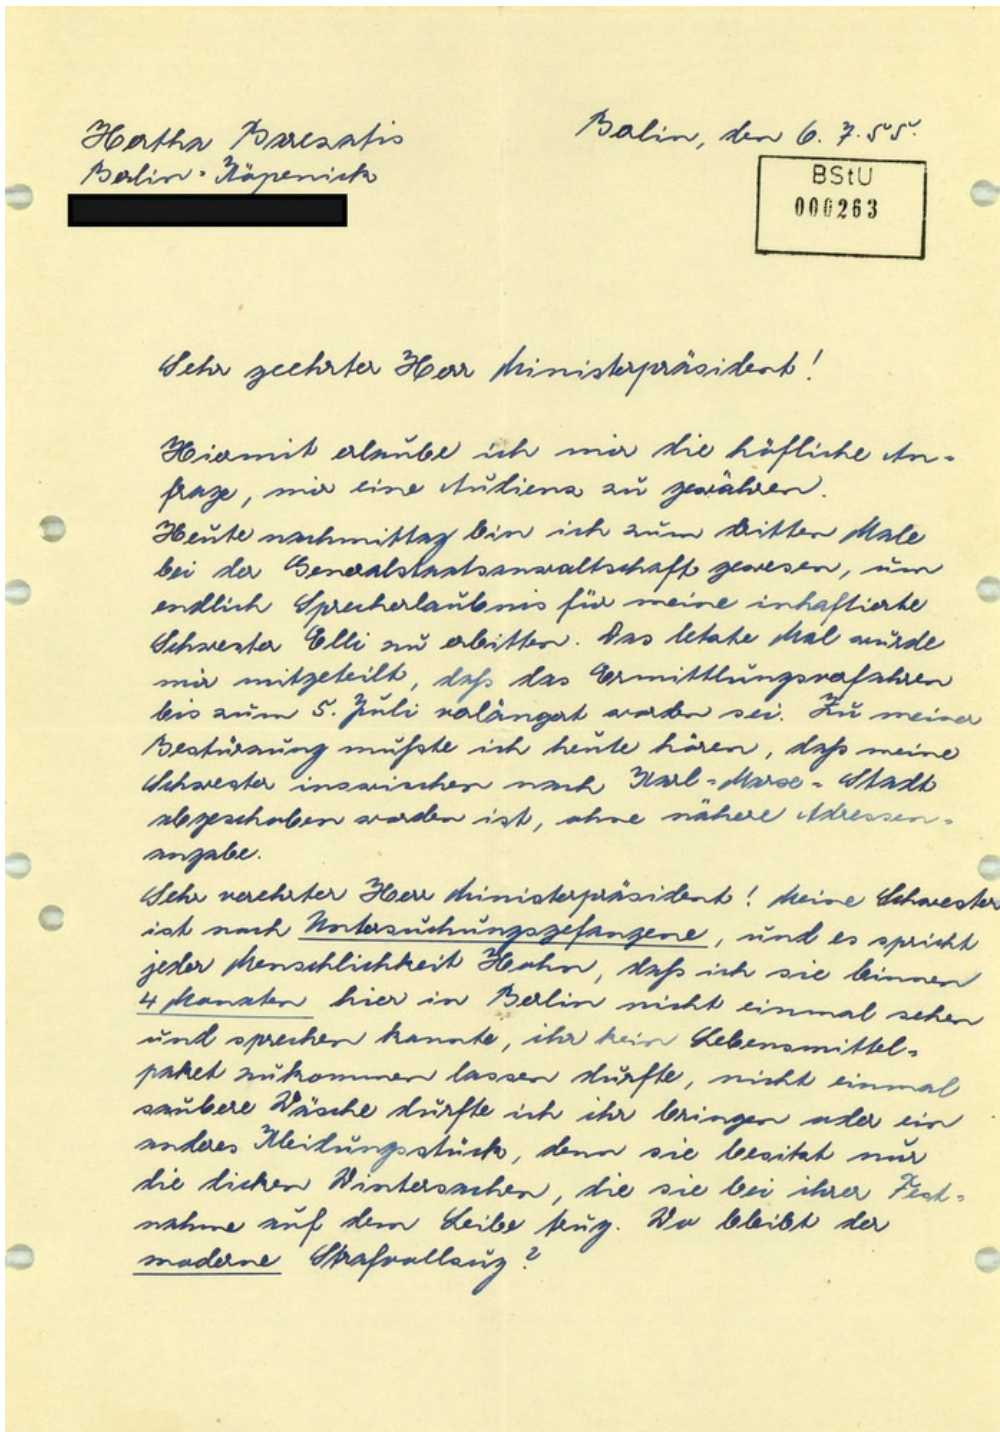 Hertha Barczatis
Berlin-Köpenick
Berlin, den 6. 7. 55.
BStU
000263
Sehr geehrter Herr Ministerpräsident!
Hiermit erlaube ich mir die höfliche An-
frage, mir eine Audienz zu gewähren.
Heute nachmittag bin ich zum dritten Male
bei der Generalstaatsanwaltschaft gewesen, um
endlich Sprecherlaubnis für meine inhaftierte
Schwester Elli zu erbitten. Das letzte Mal wurde
mir mitgeteilt, daß das Ermittlungsverfahren
bis zum 5. Juli verlängert worden sei. Zu meiner
Bestürzung mußte ich heute hören, daß meine
Schwester inzwischen nach Karl-Marx-Stadt
abgeschoben worden ist, ohne nähere Adressen-
angabe.
Sehr verehrter Herr Ministerpräsident! Meine Schwester
ist noch Untersuchungsgefangene, und es spricht
jeder Menschlichkeit Hohn, daß ich sie binnen
4 Monaten hier in Berlin nicht einmal sehen
und sprechen konnte, ihr kein Lebensmittel-
paket zukommen lassen durfte, nicht einmal
saubere Wäsche durfte ich ihr bringen oder ein
anderes Kleidungsstück, denn sie besitzt nur
die dicken Wintersachen, die sie bei ihrer Fest-
nahme auf dem Leibe trug. Wo bleibt der
moderne Strafvollzug?